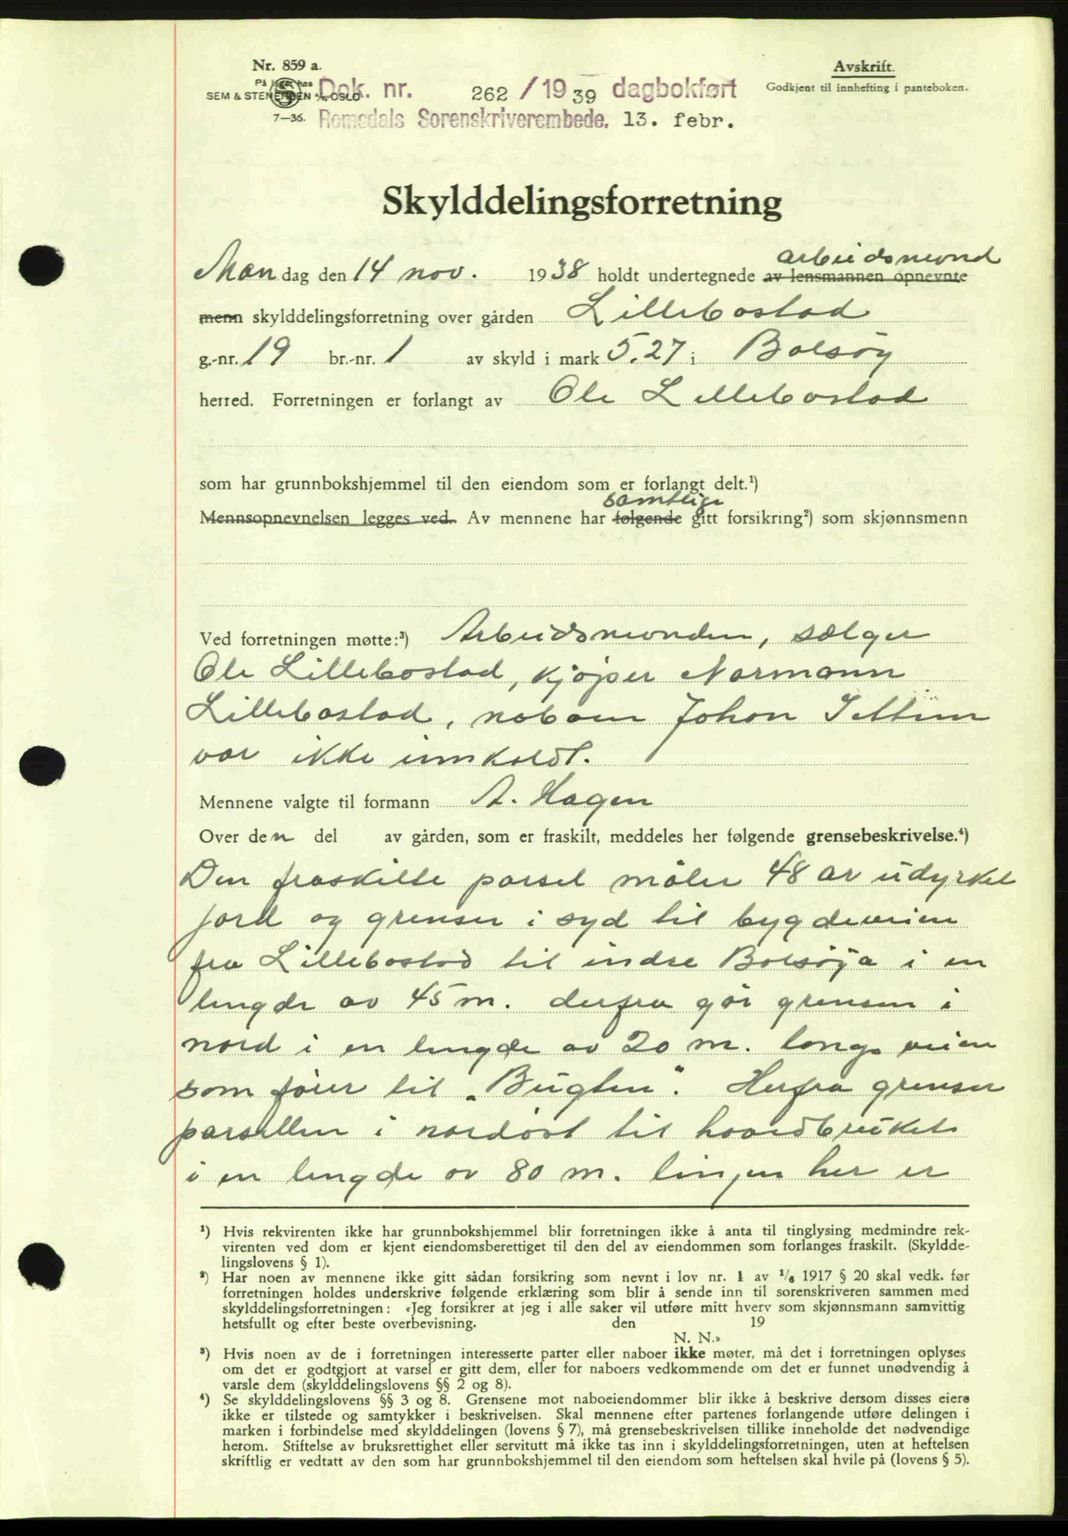 Nr. 859 a.
På lager hos
SEM & STENERSEN A/S, OSLO
7—36.
Dok. nr. 262 / 1939 dagbokført
Romsdals Sorenskriverembede. 13. febr.
Avskrift.
Godkjent til innhefting i panteboken.
Skylddelingsforretning
arbeidsmend
Mandag den 14 nov. 1938 holdt undertegnede av lensmannen opnevnte
menn skylddelingsforretning over gården Lillebostad
g.-nr. 19 br.-nr. 1 av skyld i mark 5.27 i Bolsøy
herred. Forretningen er forlangt av Ole Lillebostad
som har grunnbokshjemmel til den eiendom som er forlangt delt.¹)
samtlige
Mennsopnevnelsen legges ved. Av mennene har følgende gitt forsikring²) som skjønnsmenn
Ved forretningen møtte:³) Arbeidsmenden, sælger
Ole Lillebostad, kjøper Normann
Lillebostad, naboen Johan
var ikke innkaldt.
Mennene valgte til formann A. Hagen
Over den del av gården, som er fraskilt, meddeles her følgende grensebeskrivelse.⁴)
Den fraskilte parsel måler 48 ar udyrket
jord og grenser i syd til bygdeveien
fra Lillebostad til indre Bolsøya i en
lengde av 45 m. derfra går grensen i
nord i en lengde av 20 m. langs veien
som fører til „Bugten“. Herfra grenser
parsellen i nordøst til hovedbruket
i en lengde av 80 m. linjen her er
¹) Hvis rekvirenten ikke har grunnbokshjemmel blir forretningen ikke å anta til tinglysing medmindre rek-
virenten ved dom er kjent eiendomsberettiget til den del av eiendommen som forlanges fraskilt. (Skyldde-
lingslovens § 1).
²) Har noen av mennene ikke gitt sådan forsikring som nevnt i lov nr. 1 av 1/6 1917 § 20 skal vedk. før
forretningen holdes underskrive følgende erklæring som blir å sende inn til sorenskriveren sammen med
skylddelingsforretningen: «Jeg forsikrer at jeg i alle saker vil utføre mitt hverv som skjønnsmann samvittig
hetsfullt og efter beste overbevisning. den 19
N. N.»
³) Hvis noen av de i forretningen interesserte parter eller naboer ikke møter, må det i forretningen oplyses
om det er godtgjort at varsel er gitt dem, eller for naboers vedkommende om det er funnet unødvendig å
varsle dem (skylddelingslovens §§ 2 og 8).
⁴) Se skylddelingslovens §§ 3 og 8. Grensene mot naboeiendommer blir ikke å beskrive dersom disses eiere
ikke er tilstede og samtykker i beskrivelsen. Skal mennene efter partenes forlangende utføre delingen i
marken i forbindelse med skylddelingen (lovens § 7), må grensebeskrivelsen tillike inneholde det nødvendige
herom. Stiftelse av bruksrettighet eller servitutt må ikke tas inn i skylddelingsforretningen, uten at heftelsen
skriftlig er vedtatt av den som har grunnbokshjemmel til den eiendom som heftelsen skal hvile på (lovens § 5).